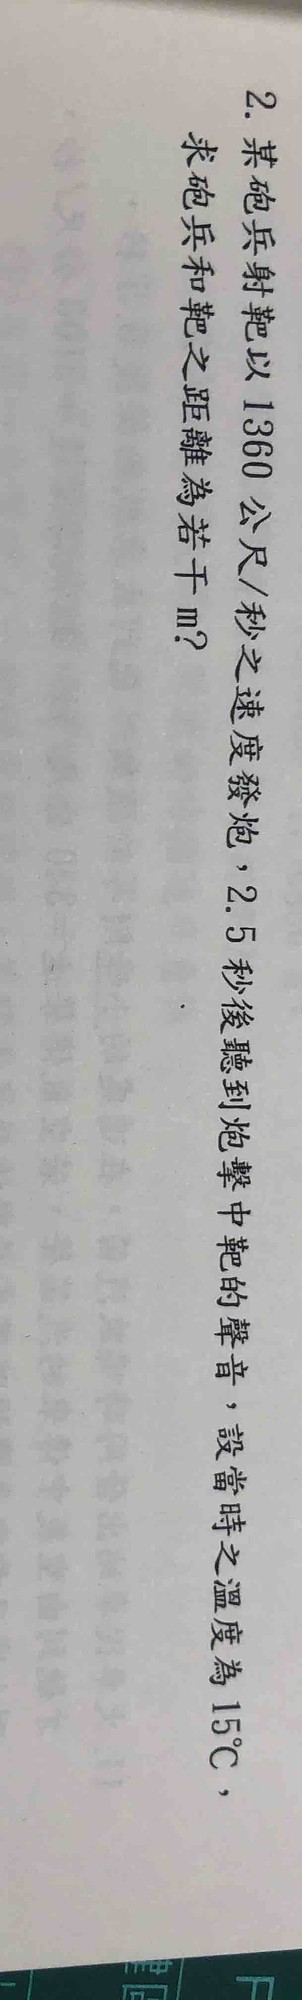 2. 某砲兵射靶以 1360 公尺/秒之速度發炮，2.5 秒後聽到炮擊中靶的聲音，設當時之溫度為 15℃，
求砲兵和靶之距離為若干 m?